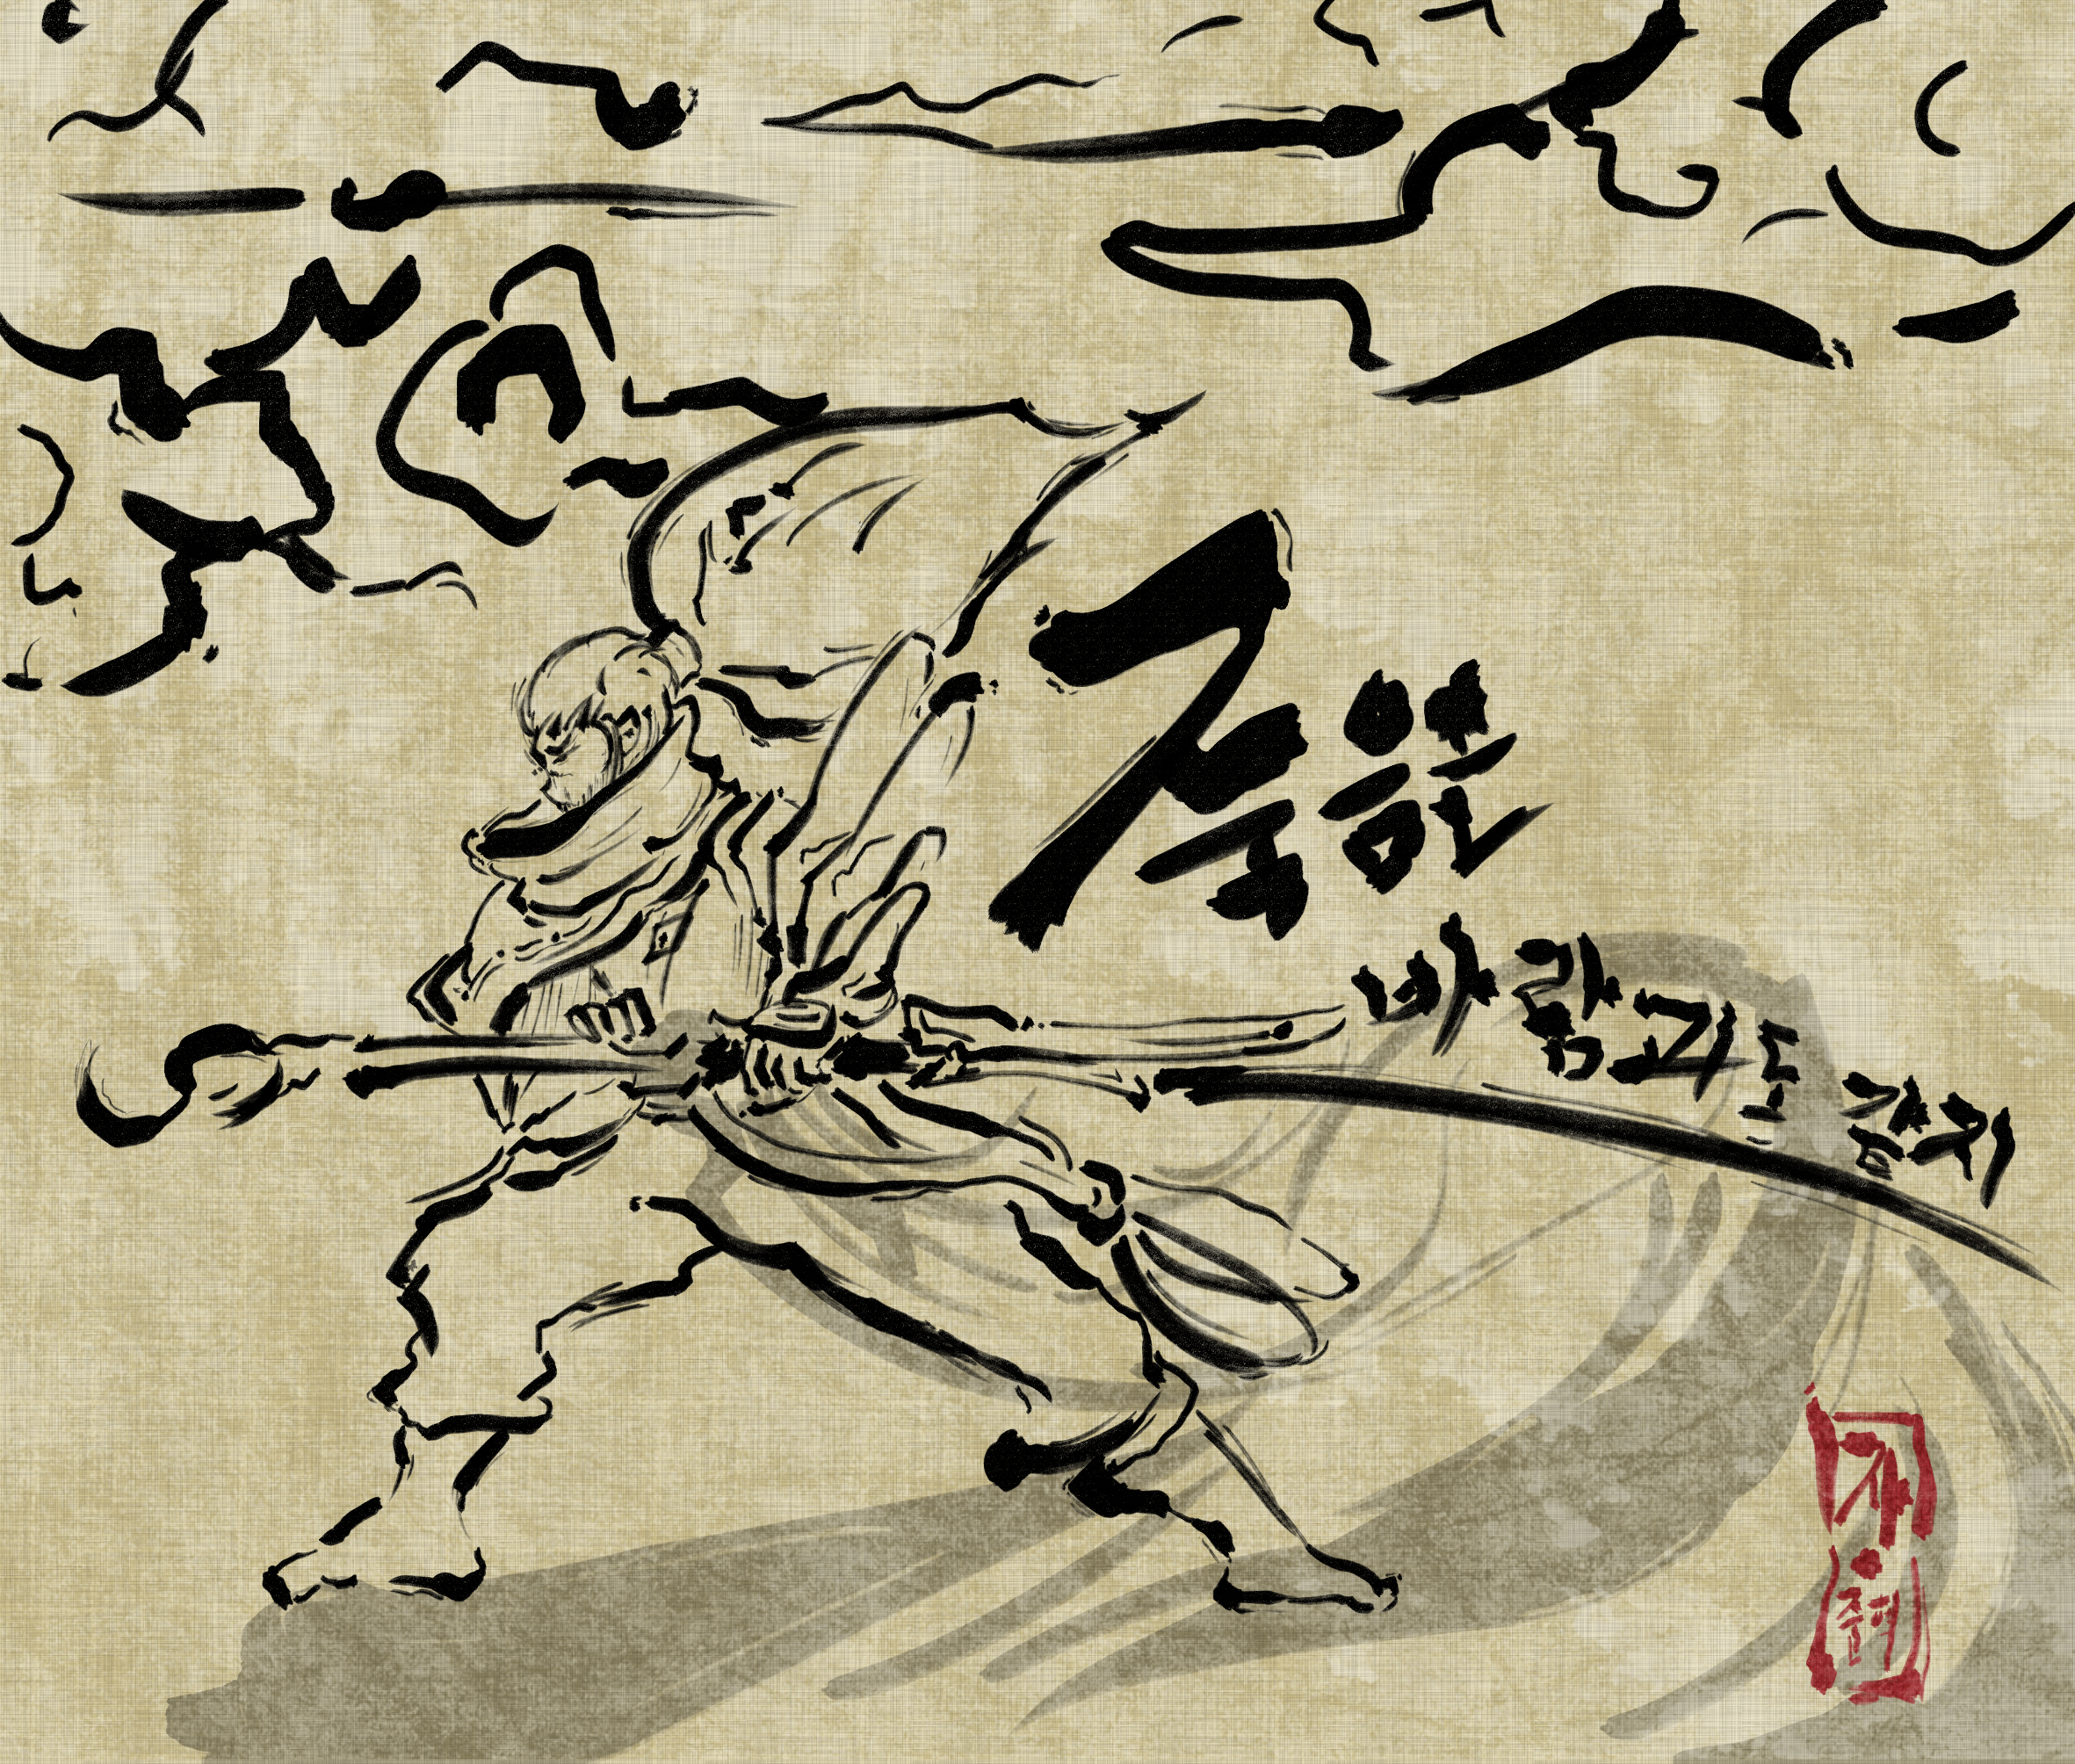 죽음은
바람과도 같지